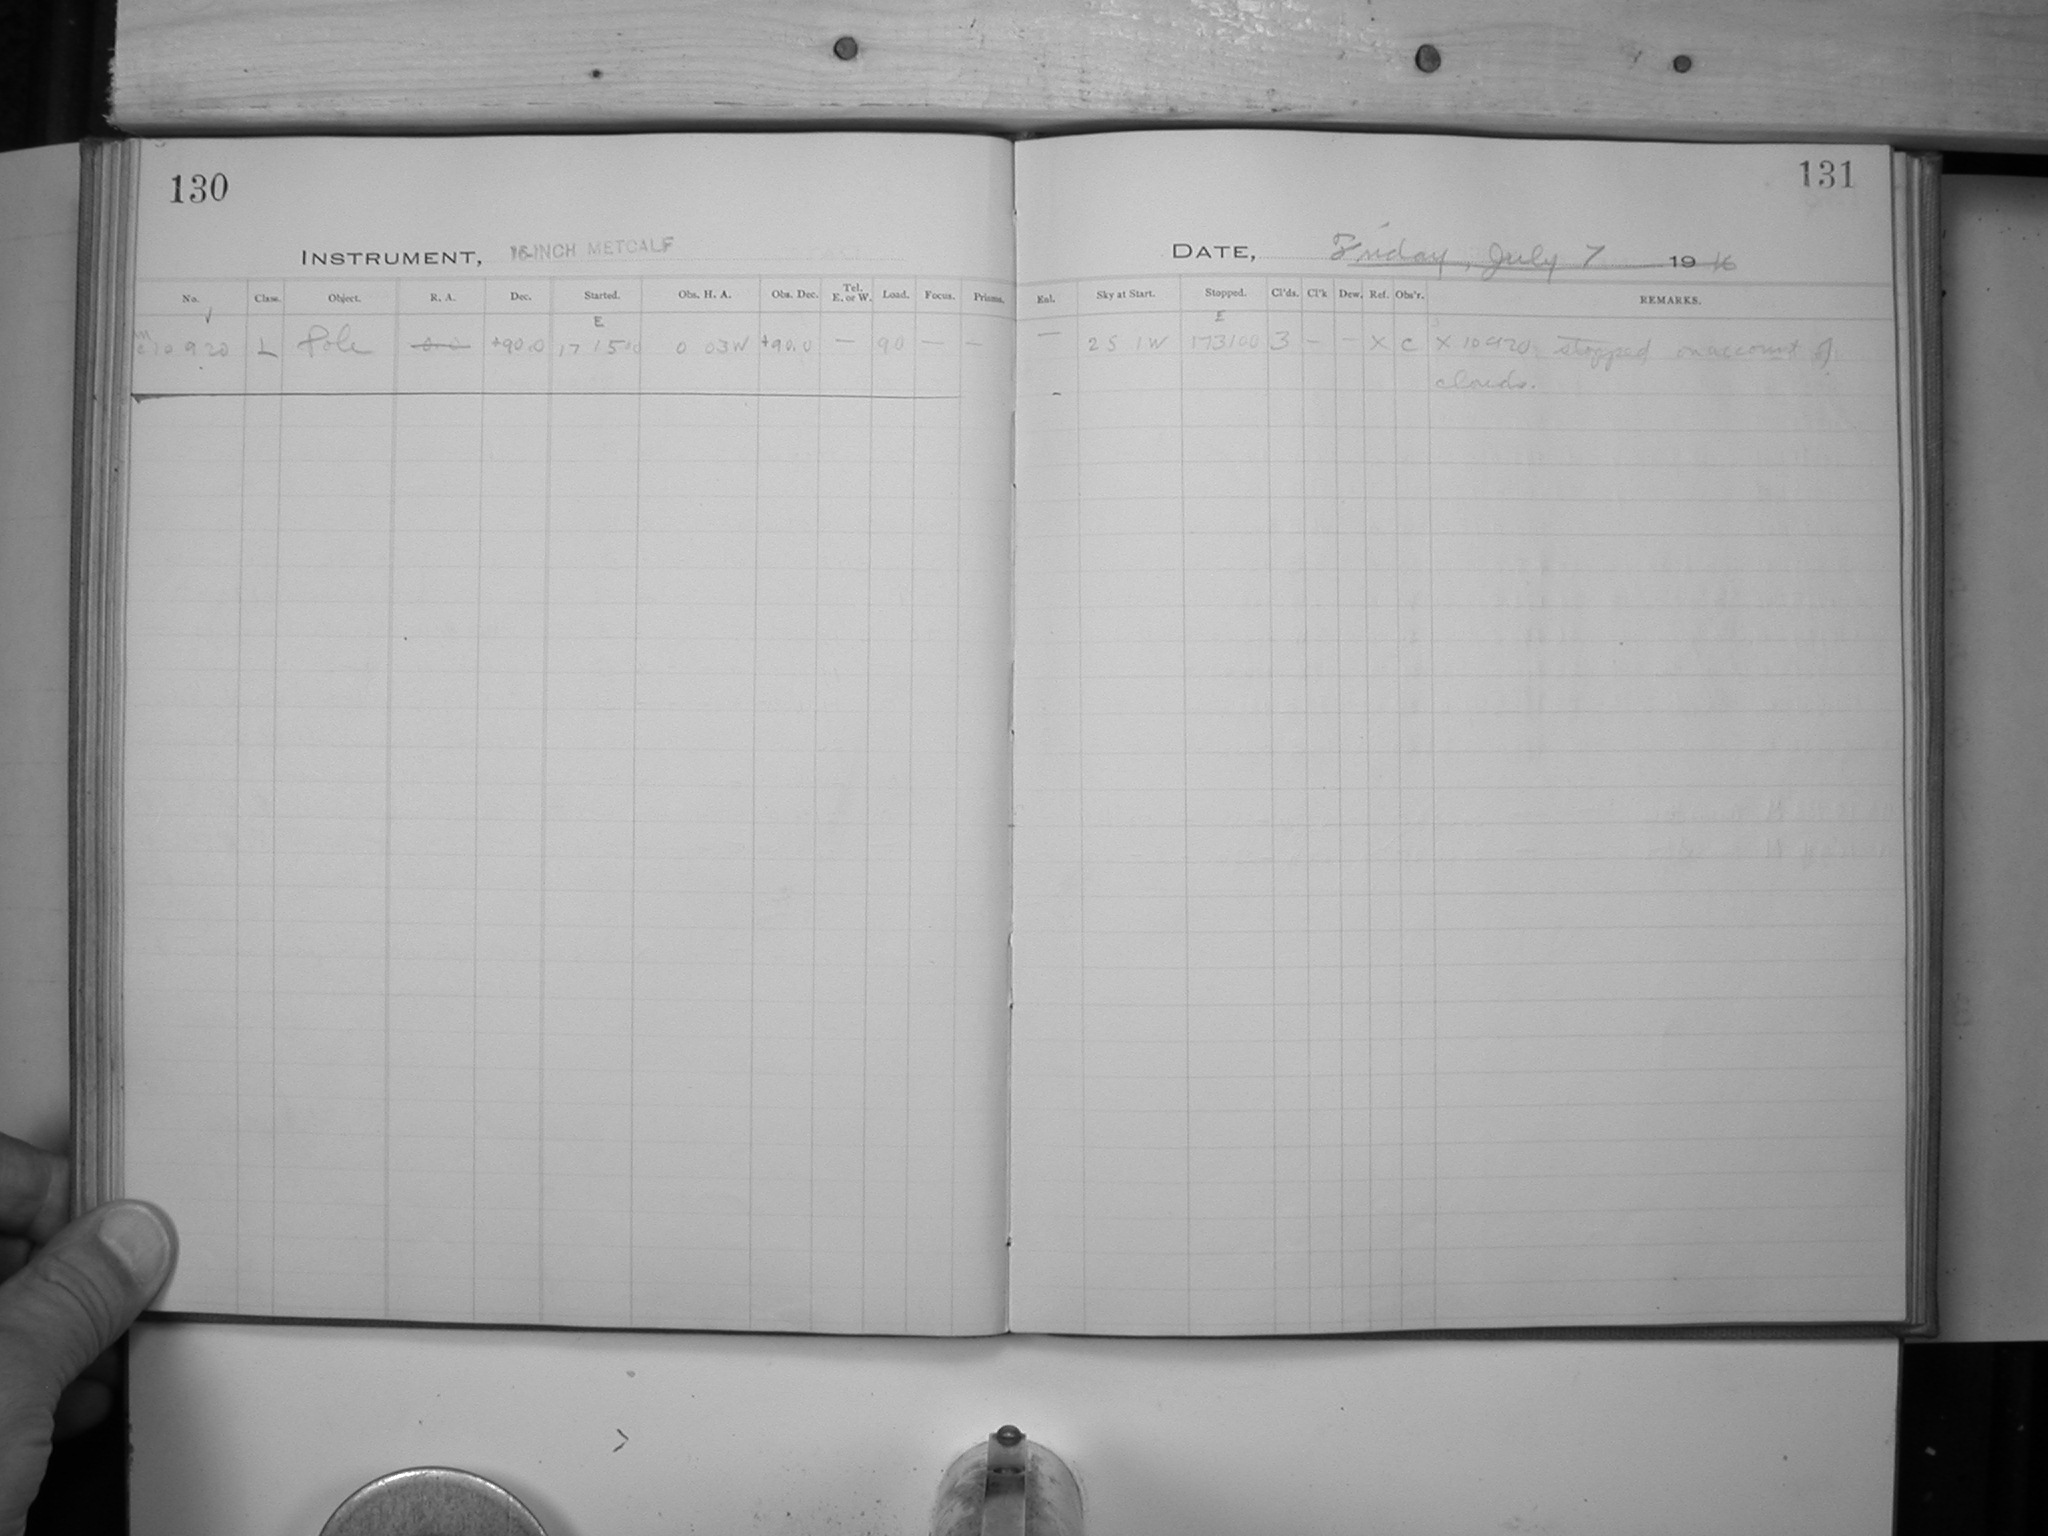 130
INSTRUMENT, 16-INCH METCALF
No. Class. Object. R. A. Dec. Started. Obs. H. A. Obs. Dec. Tel. E. or W. Load. Focus. Prisms.
E
10920 L Pole 0.0 +90.0 17 15 00 0 03W +90.0 — 90 — —
131
DATE, Friday, July 7 1916
Enl. Sky at Start. Stopped. Cl'ds. Cl'k Dew. Ref. Obs'r. REMARKS.
E
— 2 S 1W 173100 3 — — X C X 10920 stopped on account of
clouds.